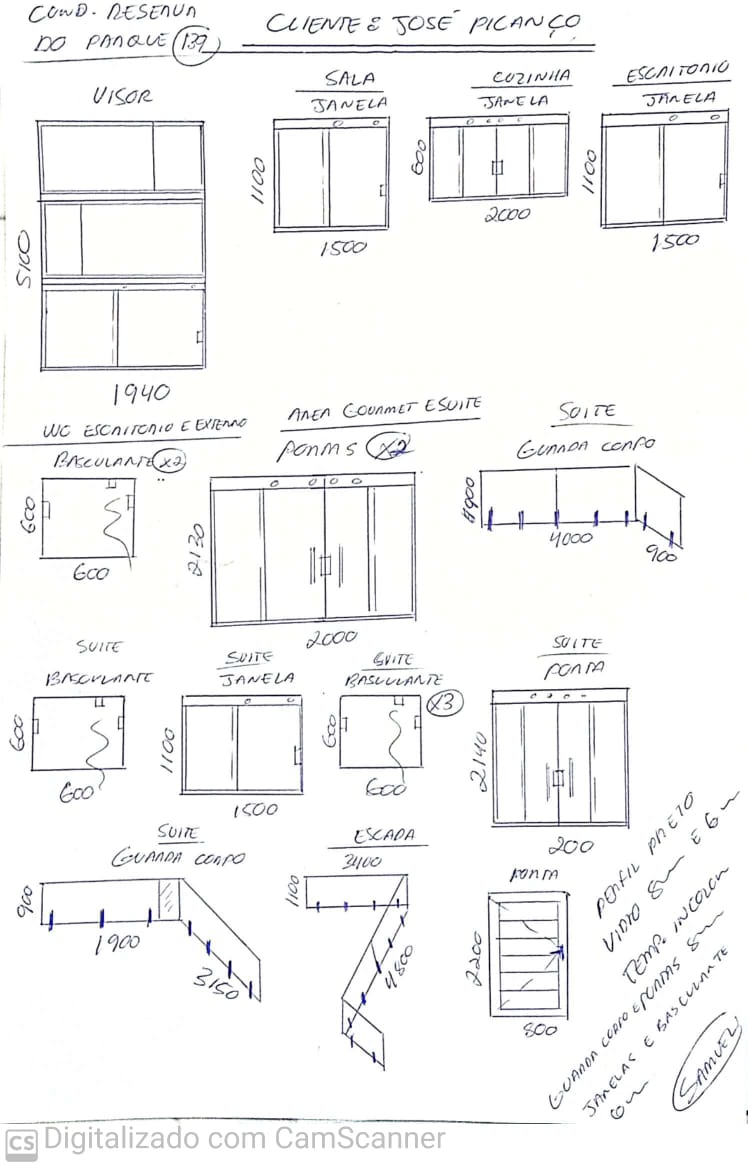 COND. RESERVA
DO PARQUE 139
CLIENTE: JOSÉ PICANÇO
VISOR
5100
1940
SALA
JANELA
1100
1500
COZINHA
JANELA
600
2000
ESCRITORIO
JANELA
1100
1500
WC ESCRITORIO E EXTERNO
BASCULANTE X2
600
600
AREA GOURMET E SUITE
PORTAS X2
2130
2000
SUITE
GUARDA CORPO
4000
900
SUITE
BASCULANTE
600
600
SUITE
JANELA
1100
1500
SUITE
BASCULANTE X3
600
600
SUITE
PORTA
2140
200
SUITE
GUARDA CORPO
900
1900
3150
ESCADA
3400
1100
4800
PORTA
2200
800
PERFIL PRETO
VIDRO 8mm E 6mm
TEMP. INCOLOR
GUARDA CORPO E PORTAS 8mm
JANELAS E BASCULANTE
6mm
SAMUEL
CS Digitalizado com CamScanner